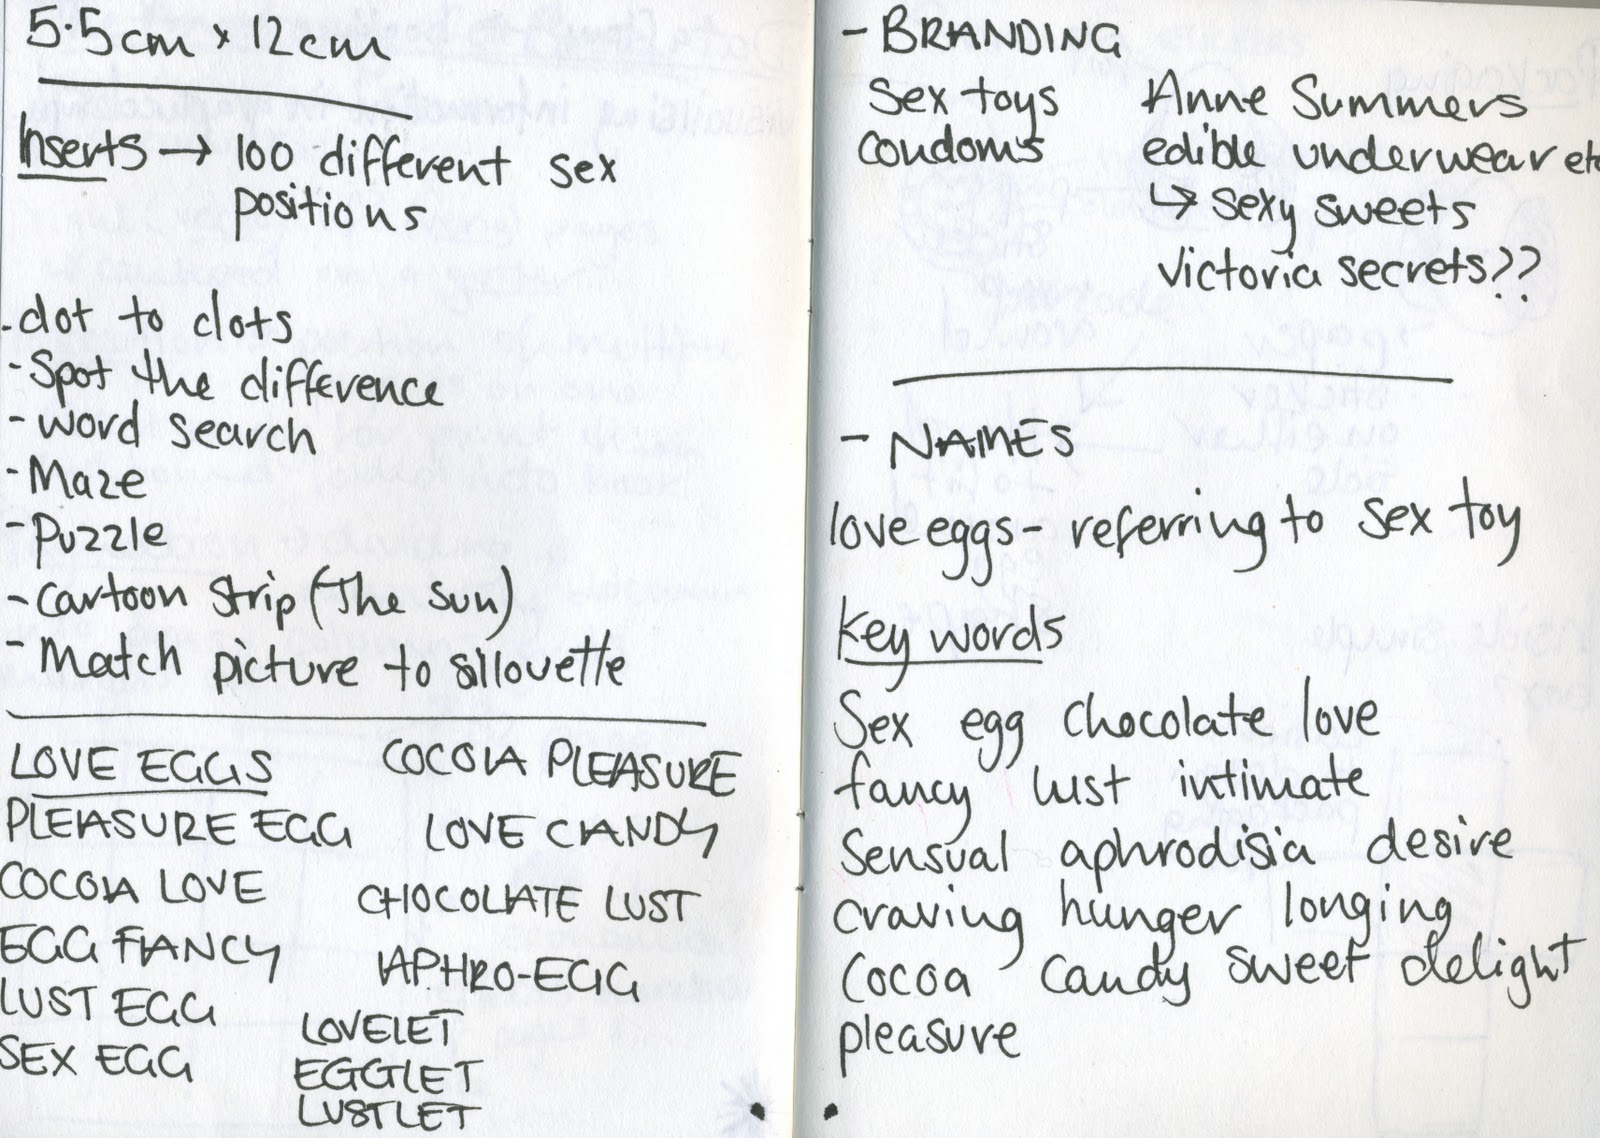 5.5cm x 12cm
Inserts → 100 different sex
positions
- dot to dots
- Spot the difference
- word search
- Maze
- Puzzle
- Cartoon Strip (The Sun)
- Match picture to sillouette
LOVE EGGS
COCOA PLEASURE
PLEASURE EGG
LOVE CANDY
COCOA LOVE
CHOCOLATE LUST
EGG FANCY
APHRO-EGG
LUST EGG
LOVELET
SEX EGG
EGGLET
LUSTLET
- BRANDING
Sex toys
Anne Summers
condoms
edible underwear etc
↳ sexy sweets
Victoria secrets??
- NAMES
love eggs - referring to sex toy
Key words
Sex egg chocolate love
fancy lust intimate
Sensual aphrodisia desire
craving hunger longing
Cocoa Candy sweet delight
pleasure